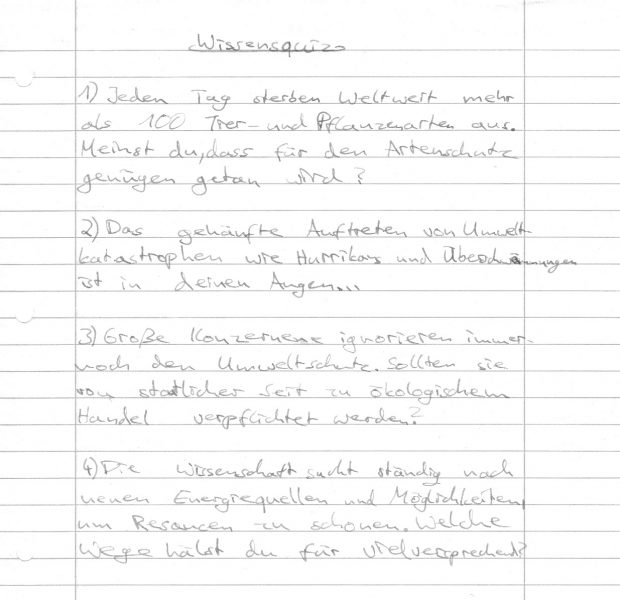 Wissensquiz
1) Jeden Tag sterben Weltweit mehr
als 100 Tier- und Pflanzenarten aus.
Meinst du, dass für den Artenschutz
genügen getan wird?
2) Das gehäufte Auftreten von Umwelt-
katastrophen wie Hurrikans und Überschwemmungen
ist in deinen Augen...
3) Große Konzerne ignorieren immer-
noch den Umweltschutz. Sollten sie
von statlicher Seit zu ökologischem
Handel verpflichtet werden?
4) Die Wissenschaft sucht ständig nach
neuen Energiequellen und Möglichkeiten,
um Resourcen zu schonen. Welche
Wege hälst du für vielversprechend?